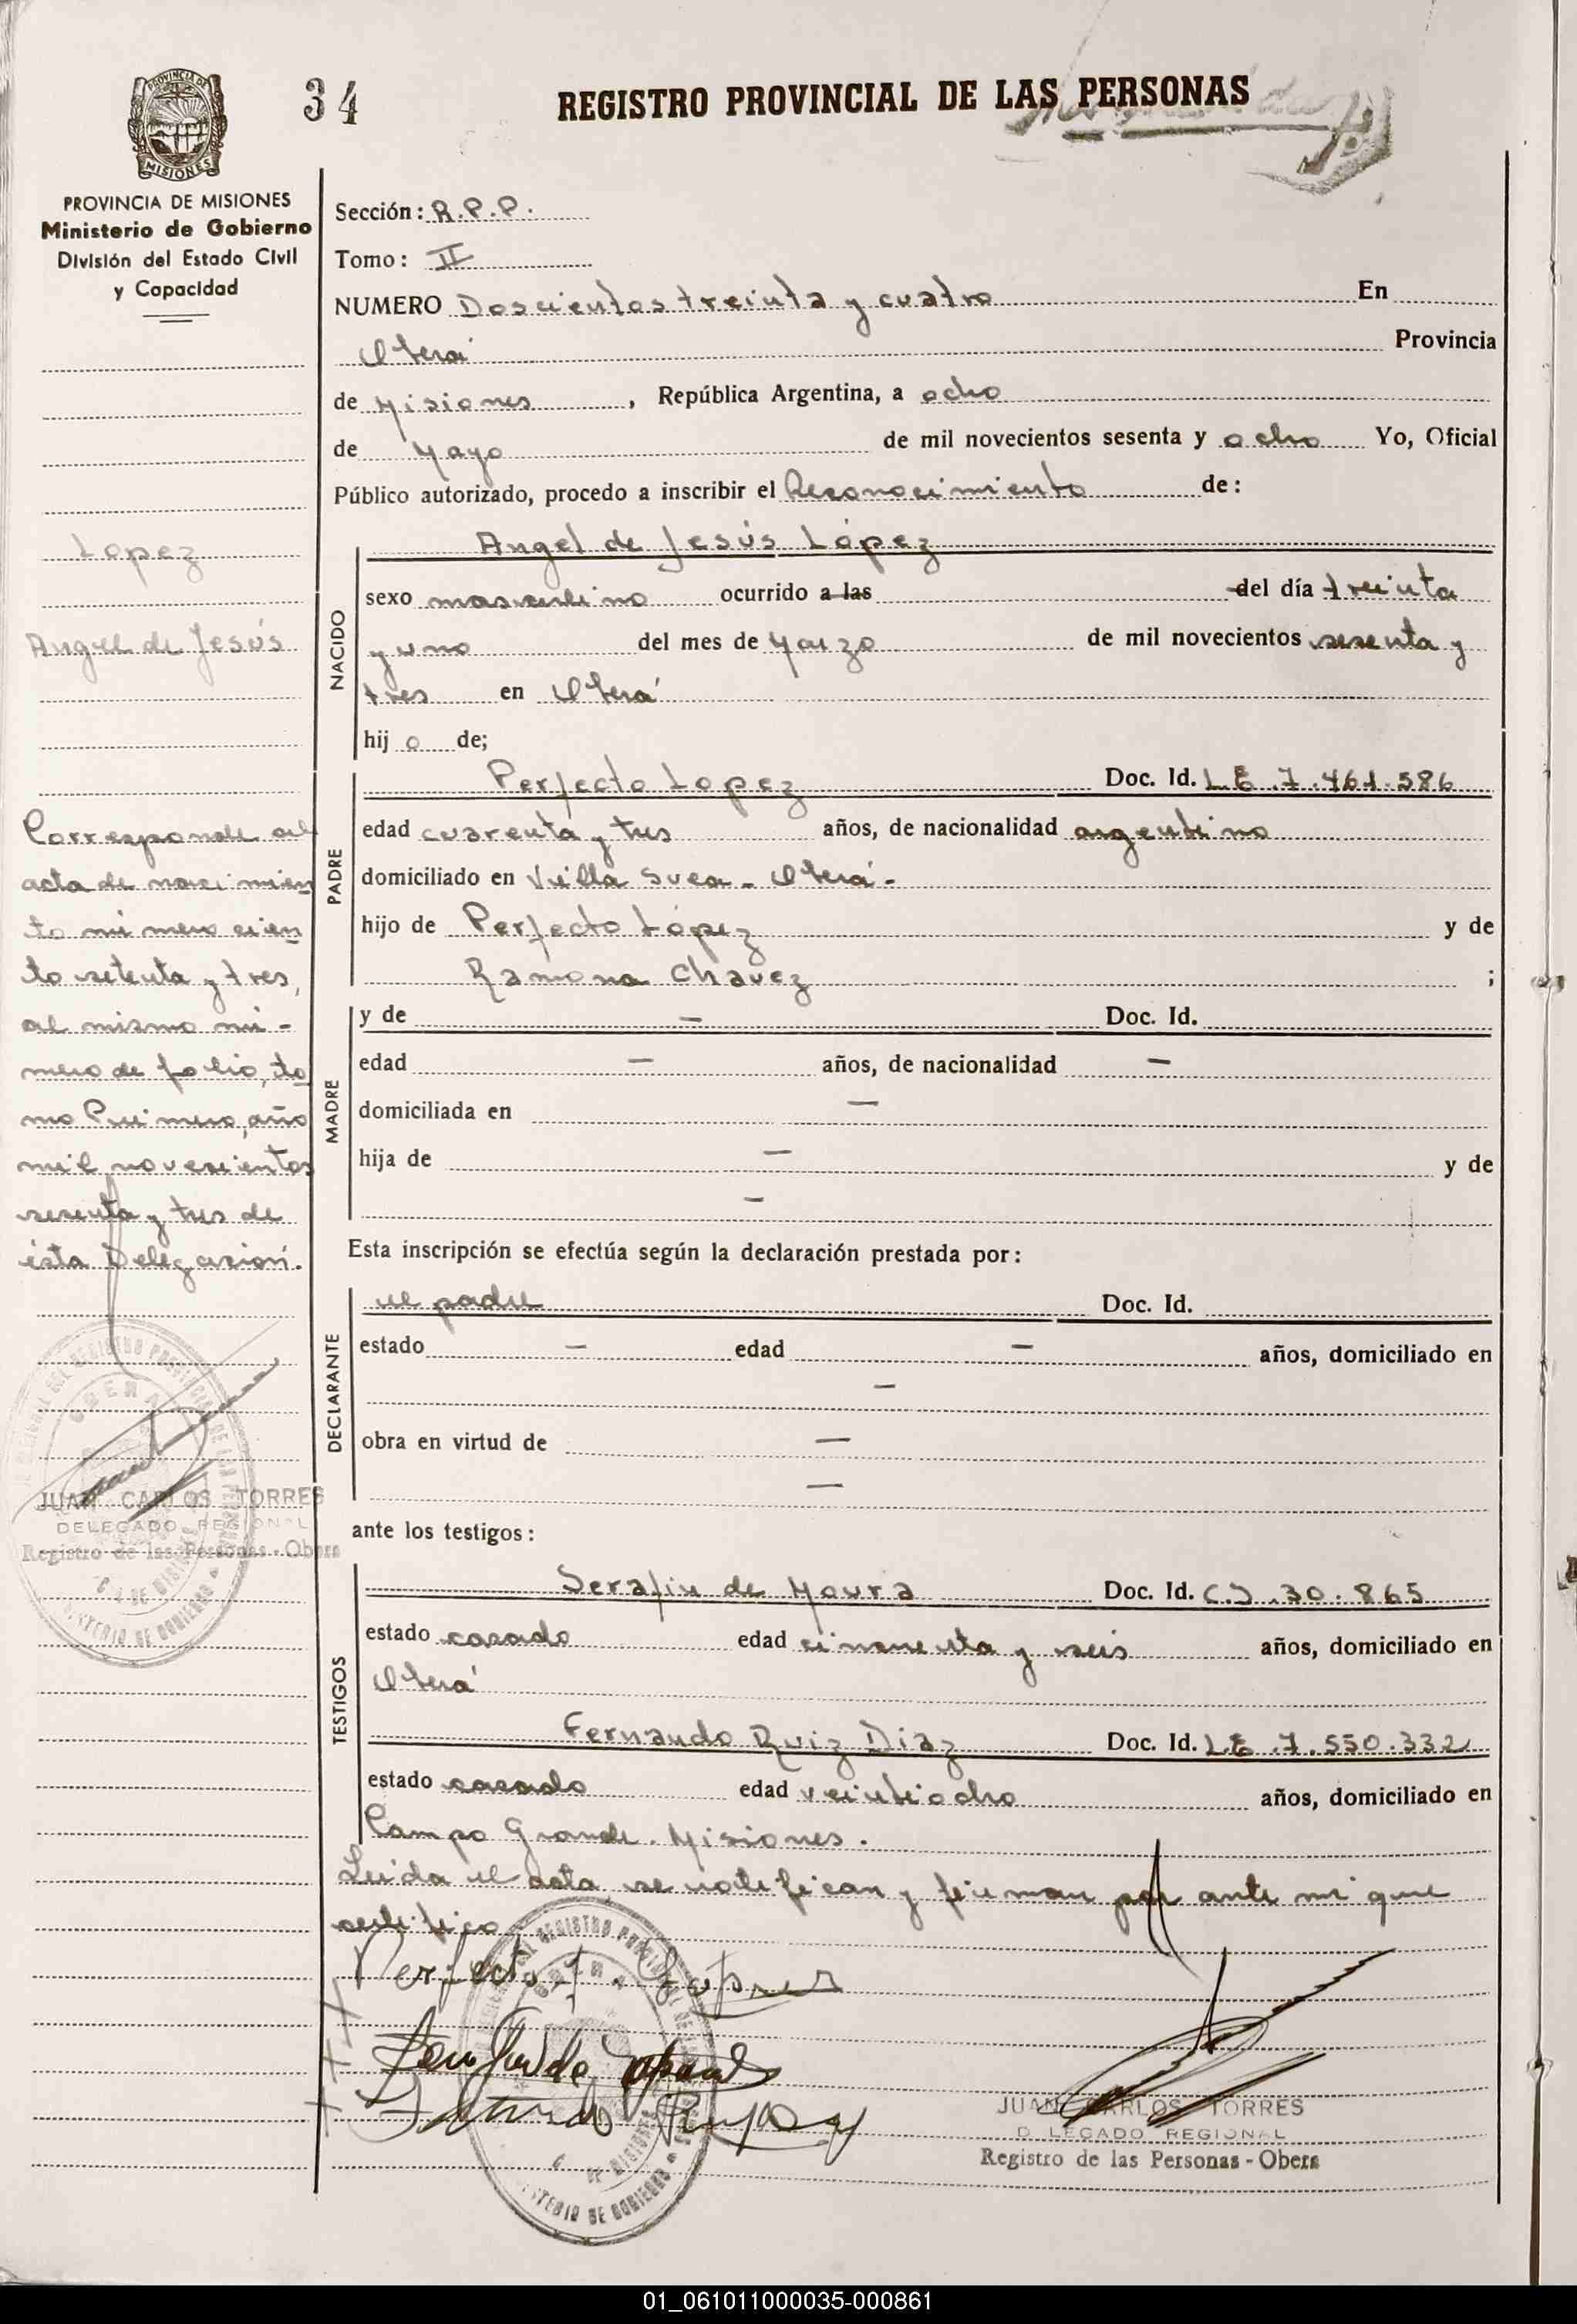 34
REGISTRO PROVINCIAL DE LAS PERSONAS
PROVINCIA DE
MISIONES
PROVINCIA DE MISIONES
Ministerio de Gobierno
División del Estado Civil
y Capacidad
Lopez
Angel de Jesús
Corresponde al
acta de nacimien
to número cien
to setenta y tres,
al mismo nú-
mero de folio, to
mo Primero, año
mil novecientos
sesenta y tres de
ésta Delegación.
OBERA
JUAN CARLOS TORRES
DELEGADO REGIONAL
Registro de las Personas - Obera
Sección: R.P.P.
Tomo: II
NUMERO Doscientos treinta y cuatro En
Oberá Provincia
de Misiones, República Argentina, a ocho
de Mayo de mil novecientos sesenta y ocho Yo, Oficial
Público autorizado, procedo a inscribir el Reconocimiento de:
NACIDO
Angel de Jesús López
sexo masculino ocurrido a las del día treinta
y uno del mes de Marzo de mil novecientos sesenta y
tres en Oberá
hij o de;
PADRE
Perfecto Lopez Doc. Id. L E .7.461.586
edad cuarenta y tres años, de nacionalidad argentino
domiciliado en Villa Svea - Oberá -
hijo de Perfecto López y de
Ramona Chavez ;
MADRE
y de — Doc. Id.
edad — años, de nacionalidad —
domiciliada en —
hija de — y de
—
Esta inscripción se efectúa según la declaración prestada por:
DECLARANTE
el padre Doc. Id.
estado — edad — años, domiciliado en
—
obra en virtud de —
—
ante los testigos:
TESTIGOS
Serafin de Moura Doc. Id. C.I .30.865
estado casado edad cincuenta y seis años, domiciliado en
Oberá
Fernando Ruiz Diaz Doc. Id. L E .7.550.332
estado casado edad veintiocho años, domiciliado en
Campo Grande. Misiones.
Leída el acta, se notifican y firman por ante mi que
certifico
Perfecto Lopez
JUAN CARLOS TORRES
D LEGADO REGIONAL
Registro de las Personas - Obera
01_061011000035-000861